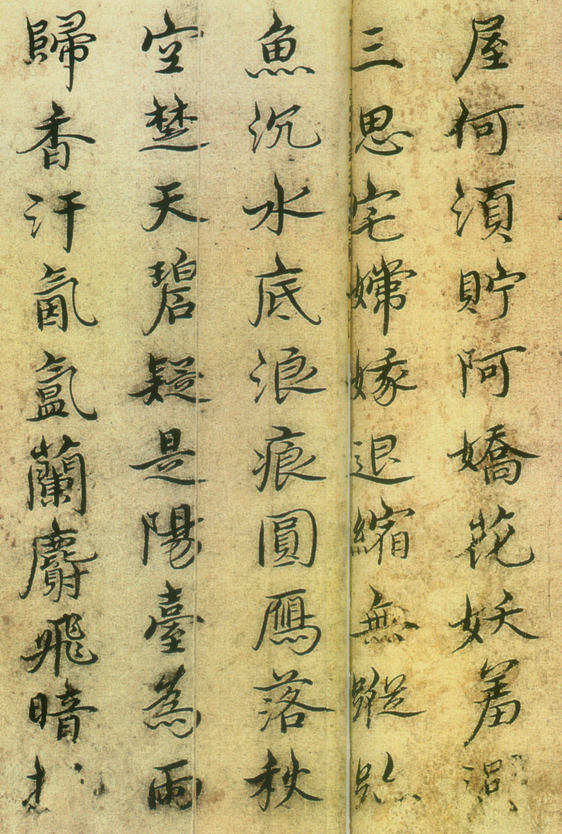 屋何須貯阿嬌花妖羞
三思宅嫦娥退縮無蹤跡
魚沉水底浪痕圓鴈落秋
空楚天碧疑是陽臺為雨
歸香汗氤氳蘭麝飛暗